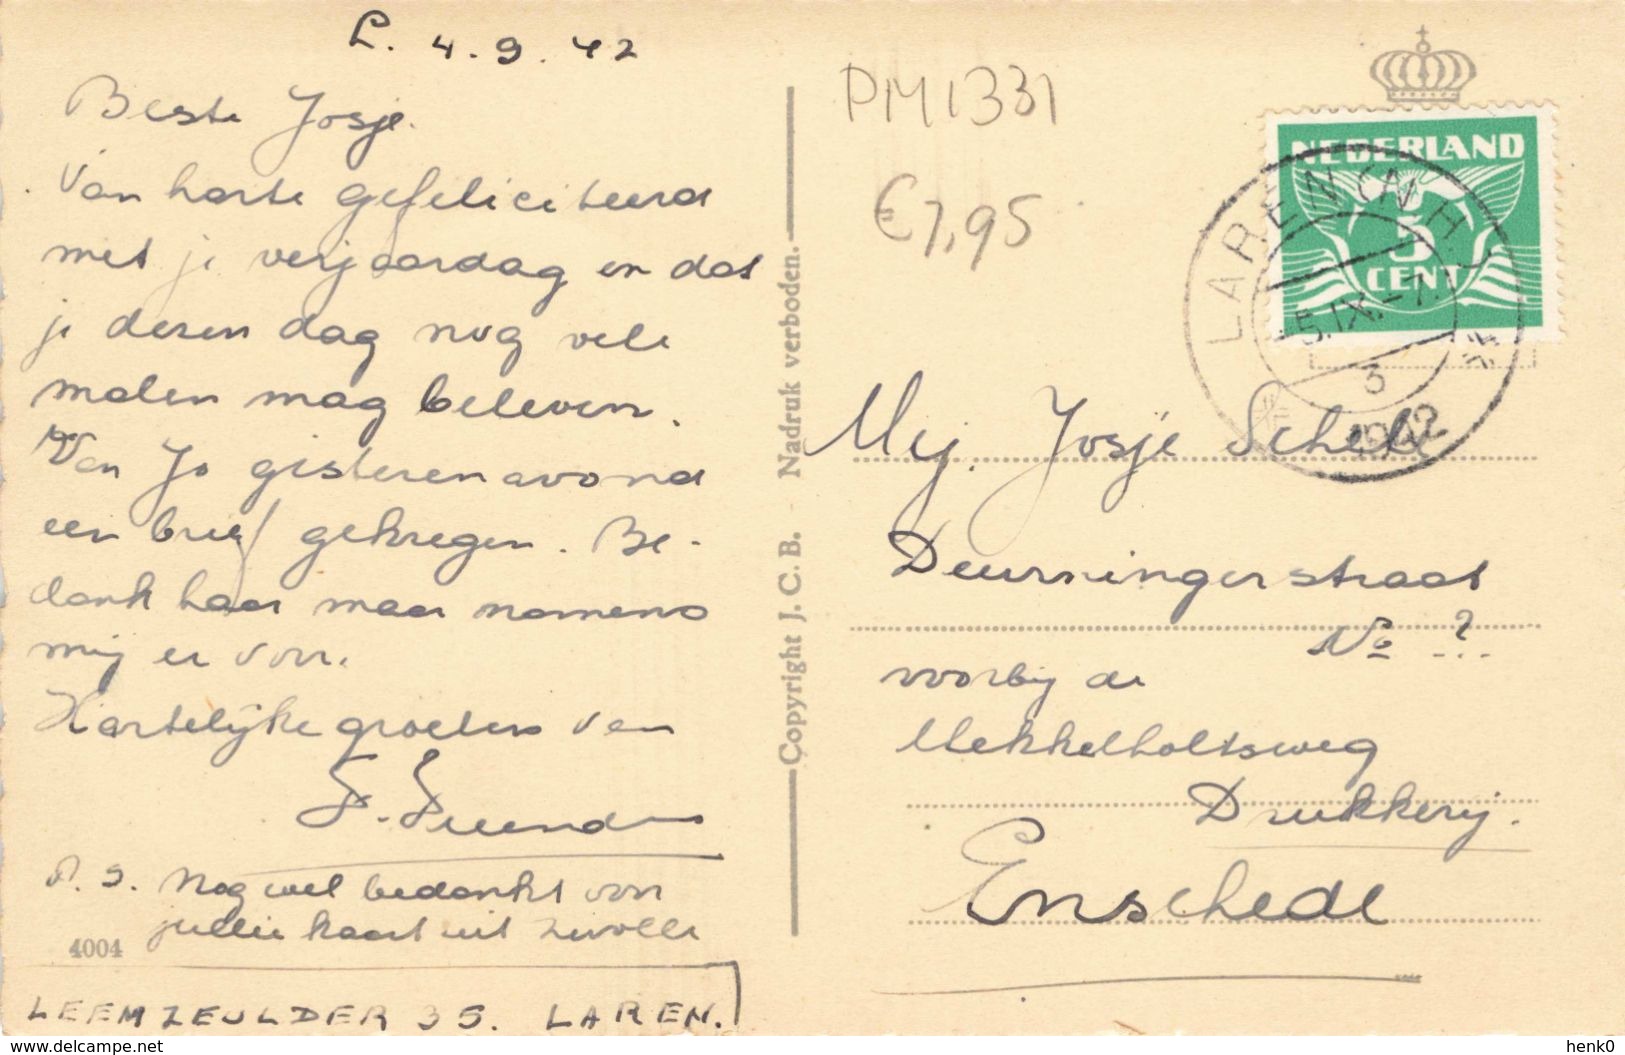 L. 4.9.42
Beste Josje.
Van harte gefeliciteerd
met je verjaardag en dat
je dezen dag nog vele
malen mag beleven.
Van Jo gisterenavond
een brief gekregen. Be-
dank haar maar namens
mij er voor.
Hartelijke groeten van
P.S. Nog wel bedankt voor
jullie kaart uit Zwolle
4004
LEEMZEULDER 35. LAREN.
Copyright J. C. B. - Nadruk verboden.
PM1331
€7,95
NEDERLAND
5
CENT
LAREN (NH)
5.IX.-7.
3
1942
Mej. Josje Schell
Deurningerstraat
No ?..
voorbij de
Mekkelholtsweg
Drukkerij.
Enschede
delcampe.net
henk0